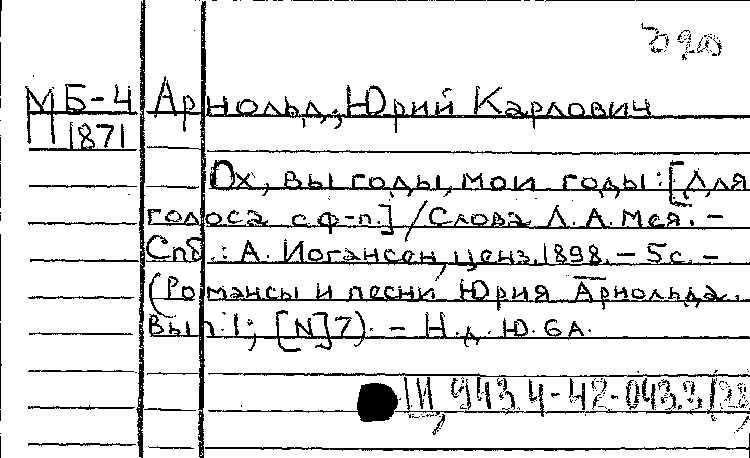 МБ-4 Арнольд, Юрий Карлович
1871
Ох, вы годы, мои годы: [Для
голоса с ф-п.] / Слова Л. А. Мея. -
Спб.: А. Иогансен, ценз. 1898. - 5с. -
(Романсы и песни Юрия Арнольда.
Вып. 1; [N]7). - Н.д. Ю.6А.
943.4-42-043.3